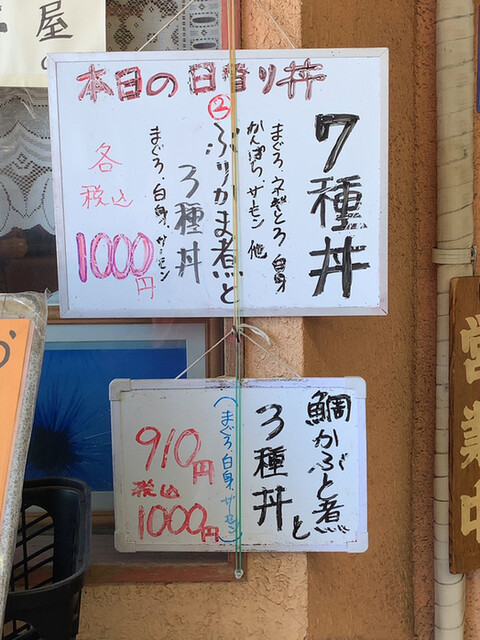 屋
の
本日の日替り丼
7種丼
まぐろ、ネギとろ、白身
かんぱち、サーモン 他
②
ぶりかま煮と
3種丼
まぐろ、白身、サーモン
各
税込
1000円
鯛かぶと煮
と
3種丼
(まぐろ、白身、サーモン)
910円
税込
1000円
営業中